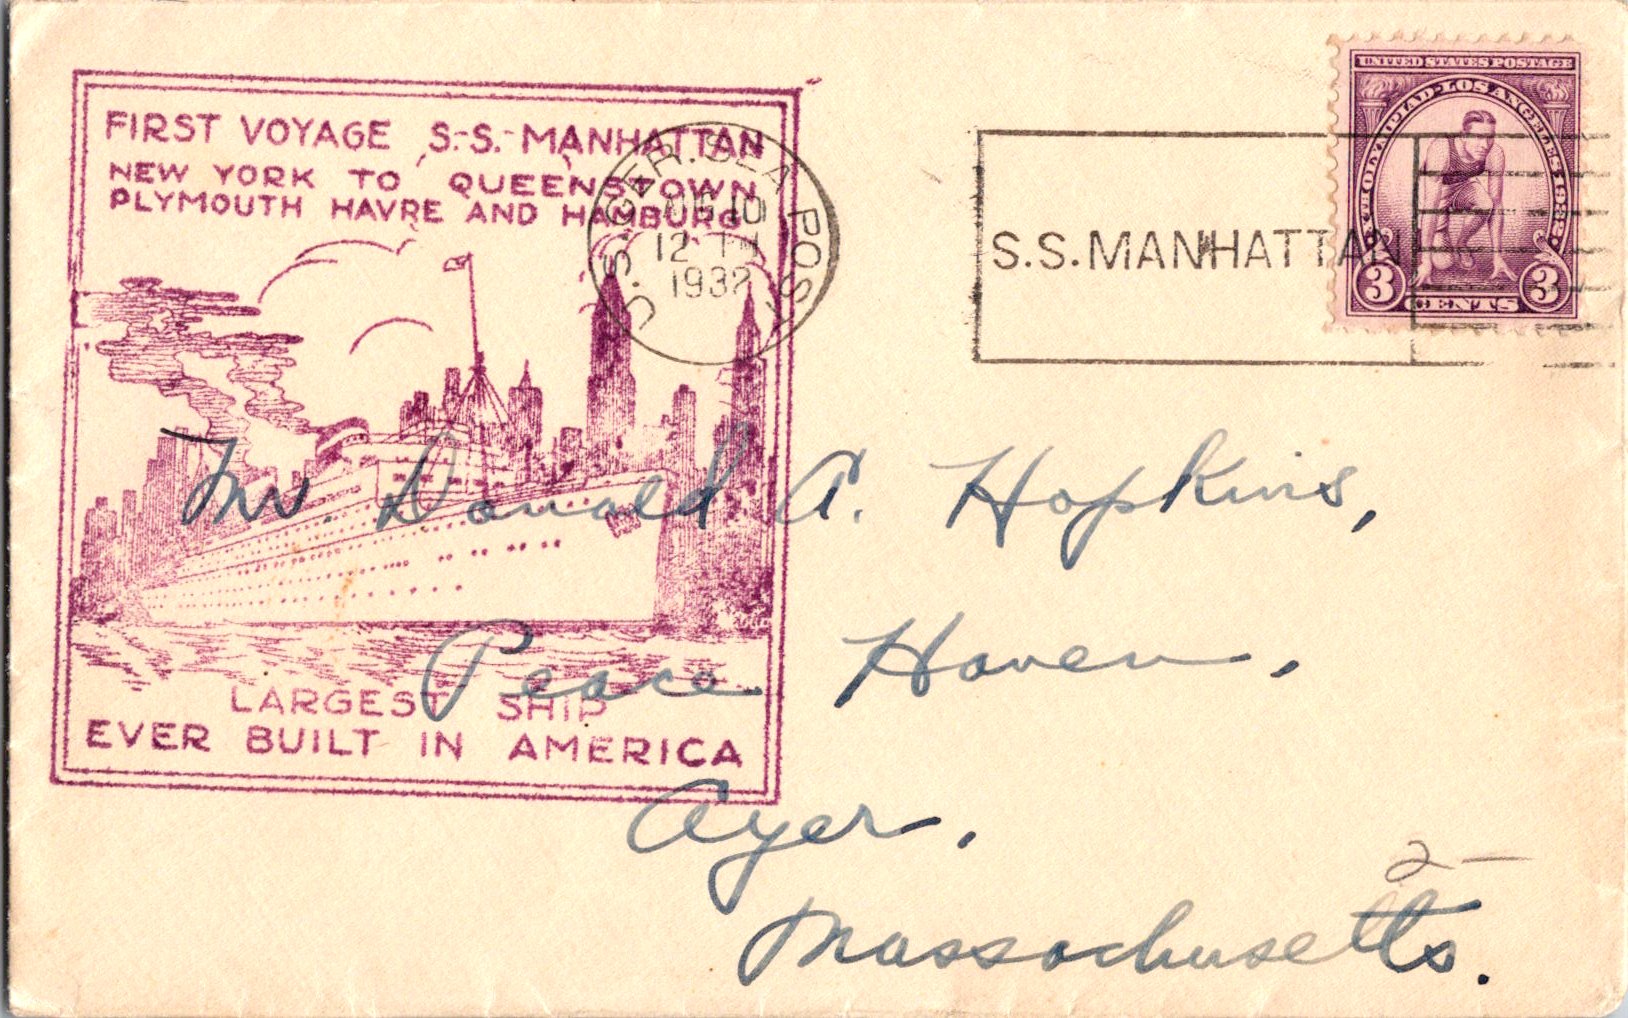 FIRST VOYAGE S.S. MANHATTAN
NEW YORK TO QUEENSTOWN
PLYMOUTH HAVRE AND HAMBURG
U.S. GER. SEA POST
AUG 10
12 PM
1932
S.S. MANHATTAN
UNITED STATES POSTAGE
XTH OLYMPIAD · LOS ANGELES 1932
3 3
CENTS
LARGEST SHIP
EVER BUILT IN AMERICA
Mr. Donald A. Hopkins,
Peace Haven.
Ayer.
Massachusetts.
2 —